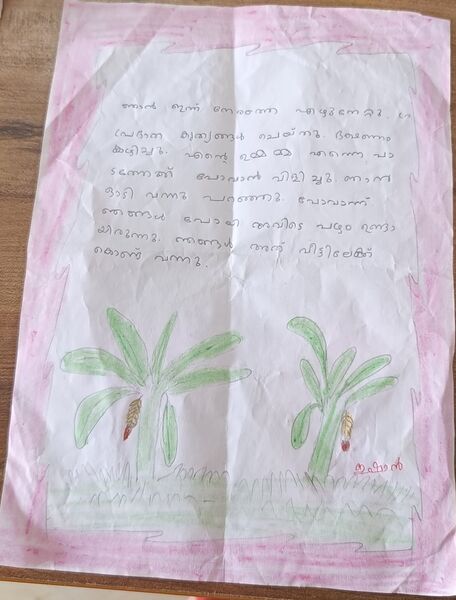 ഞാൻ ഇന്ന് നേരത്തെ എഴുന്നേറ്റു.
പ്രഭാത കൃത്യങ്ങൾ ചെയ്തു. ഭക്ഷണം
കഴിച്ചു. എന്റെ ഉമ്മമ്മ എന്നെ പാ
ടത്തേക്ക് പോവാൻ വിളിച്ചു. ഞാൻ
ഓടി വന്നു പറഞ്ഞു. പോവാന്ന്
ഞങ്ങൾ പോയി അവിടെ പഴം ഉണ്ടാ
യിരുന്നു. ഞങ്ങൾ അത് വീട്ടിലേക്ക്
കൊണ്ട് വന്നു.
ഇഷാൻ